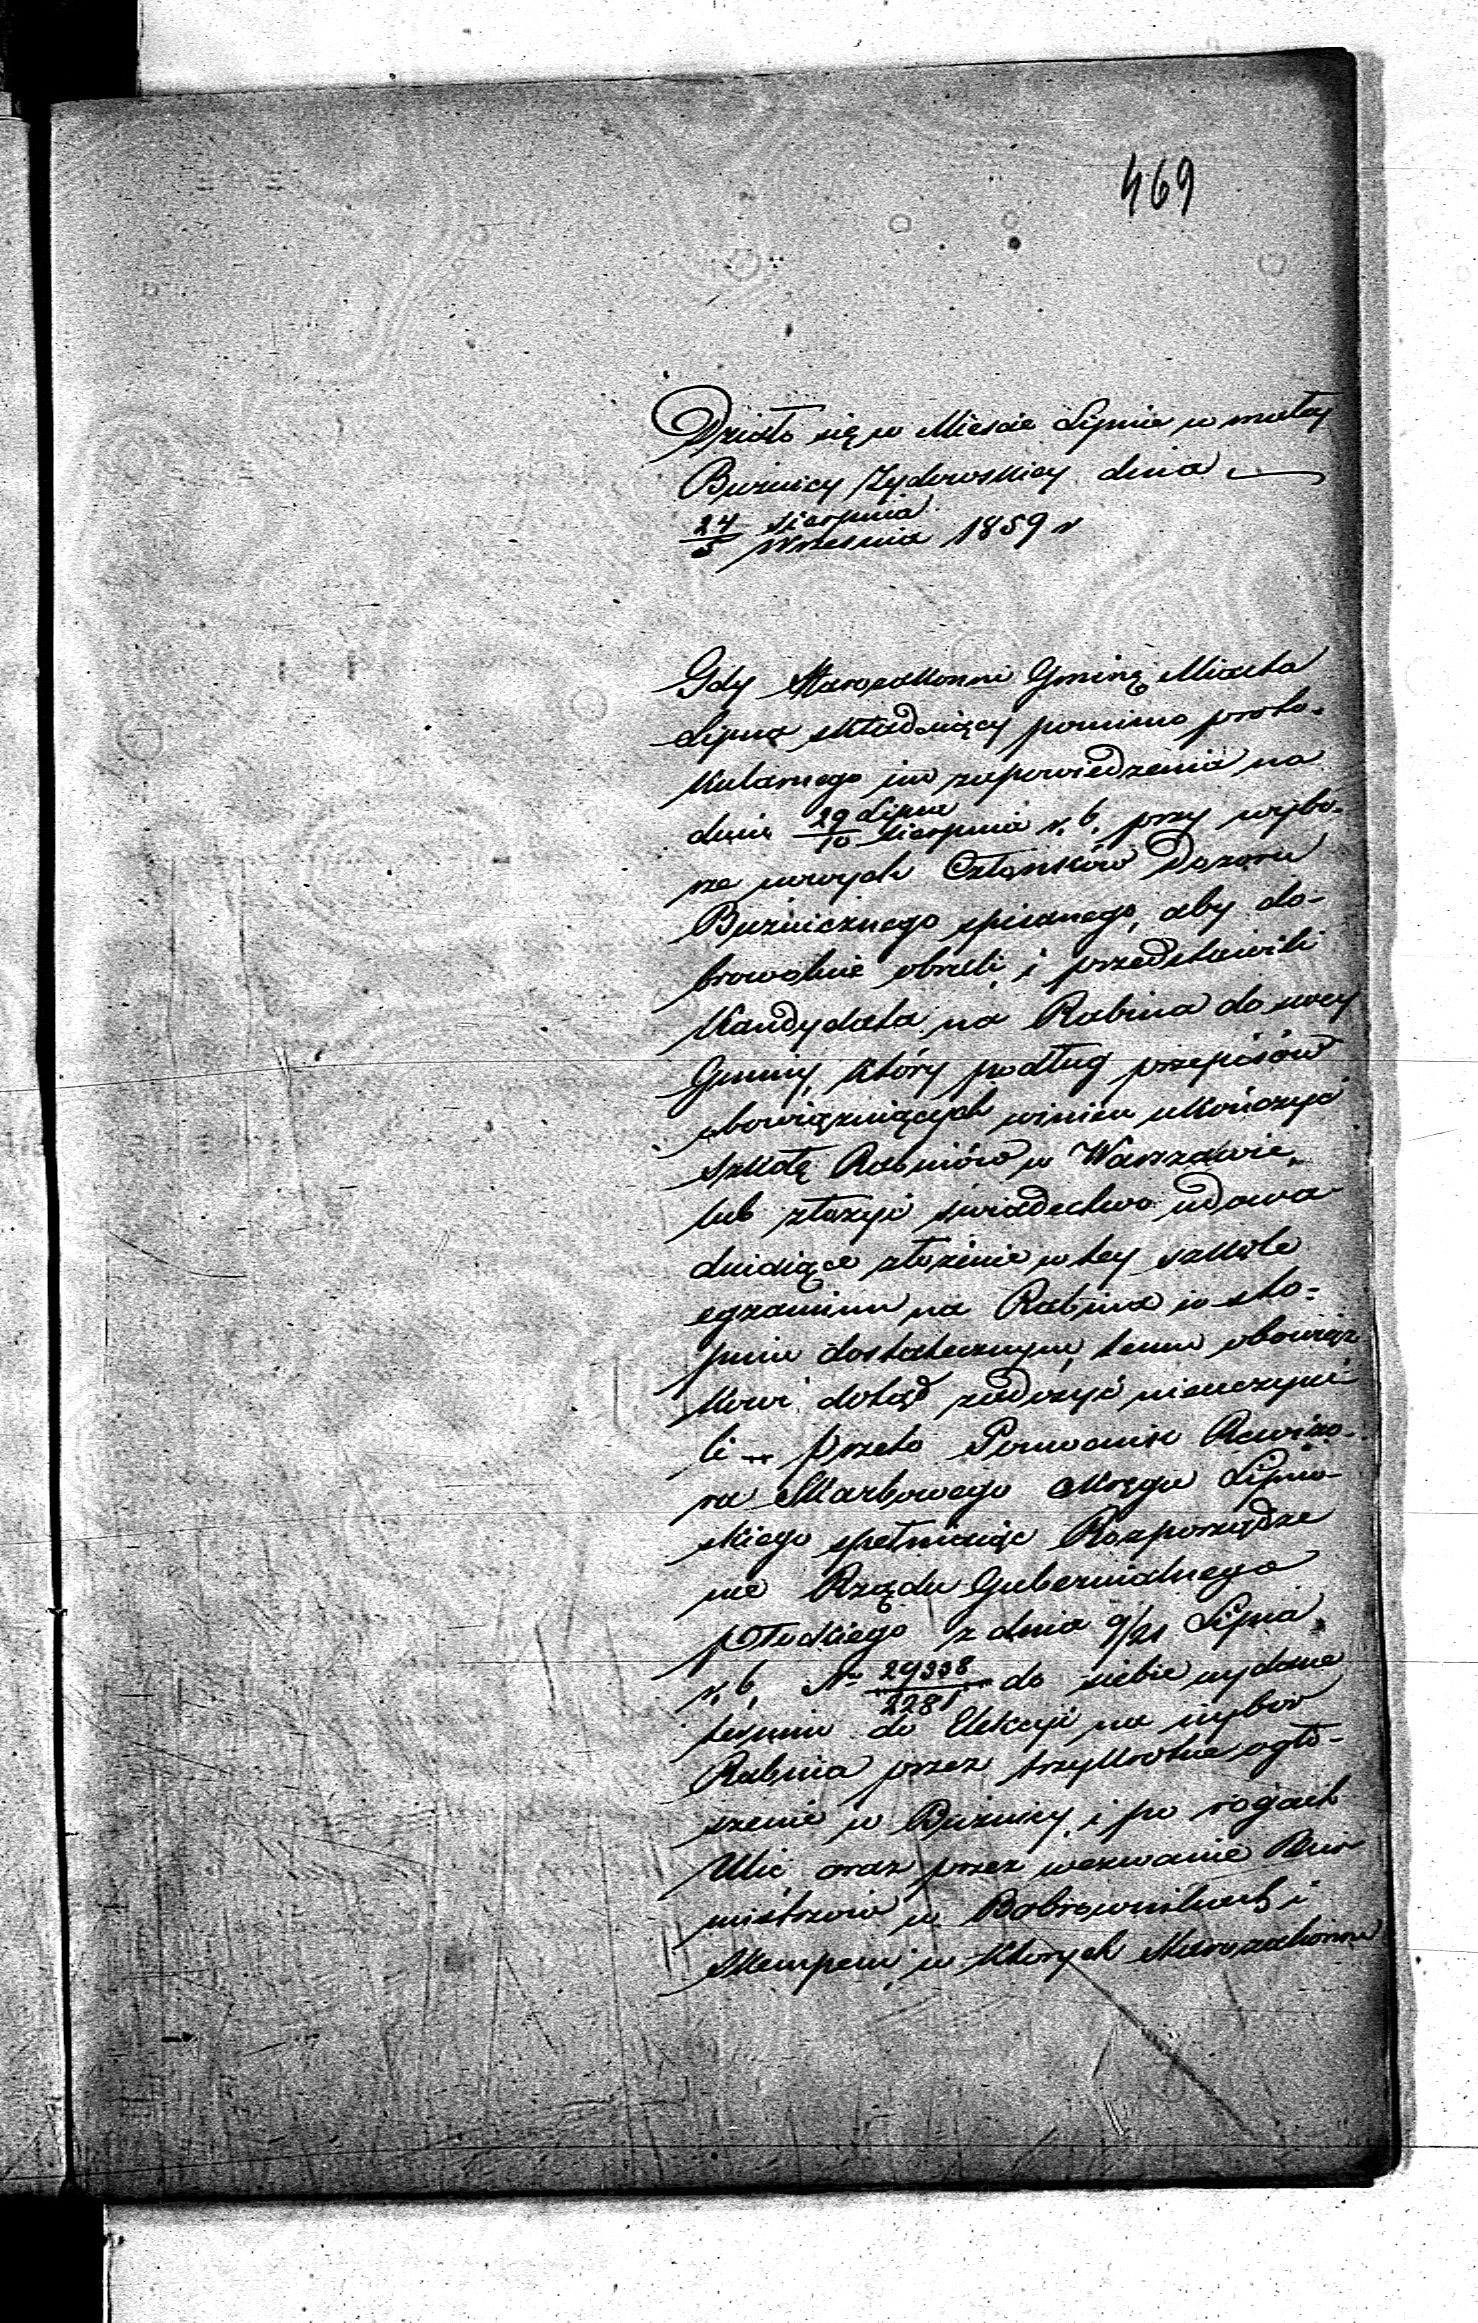 469
Działo się w Mieście Lipnie w małey
Bużnicy Żydowskiey dnia
24 Sierpnia
5 Września 1859 r
Gdy Starozakonni Gminę Miasta
Lipna składaiący pomimo proto-
kularnego im zapowiedzenia na
dniu 29 Lipca
10 Sierpnia r. b. przy wybo-
rze nowych Członków Dozoru
Bużnicznego spisanego, aby do-
browolnie obrali i przedstawili
Kandydata na Rabina do swey
Gminy, który podług przepisów
obowiązuiących winien ukończyć
szkołę Rabinów w Warszawie,
lub złożyć świadectwo udowa
dniaiące złożenie w tey szkole
egzaminu na Rabina w sto-
pniu dostatecznym, temu obowiąz
kowi dotąd zadosyć nieuczyni
li przeto Pomocnik Rewizo-
ra Skarbowego Okręgu Lipno-
skiego spełniaiąc Rozporządze
nie Rządu Gubernialnego
Płockiego z dnia 9/21 Lipca
r. b. No 29338
2281 do siebie wydane
termin do Elekcyi na wybór
Rabina przez trzykrotne ogło-
szenie w Bużnicy i po rogach
Ulic oraz przez wezwanie Bur
mistrzów w Bobrownikach i
Skempem w których Starozakonni